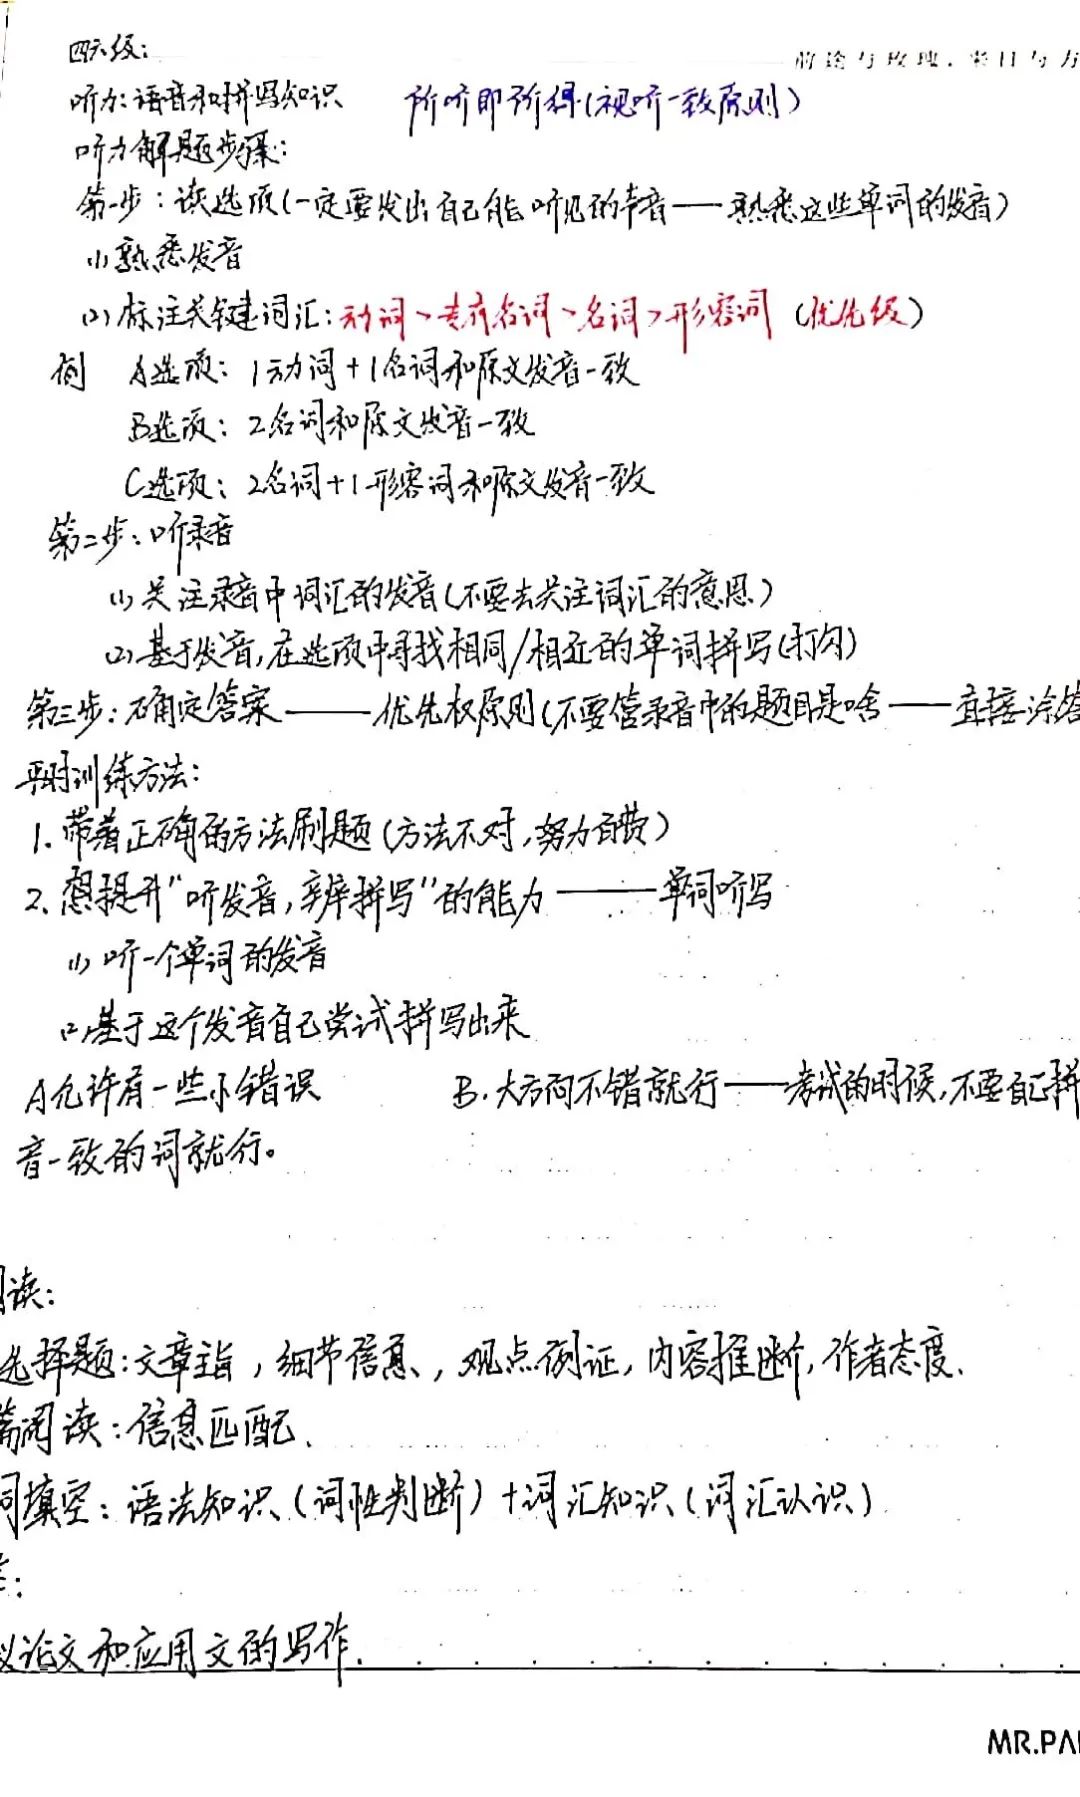 四六级:
前途与玫瑰,来日与方
听力:语音和拼写知识 所听即所得(视听一致原则)
听力解题步骤:
第一步:读选项(一定要发出自己能听见的声音——熟悉这些单词的发音)
(1)熟悉发音
(2)标注关键词汇:动词>专有名词>名词>形容词(优先级)
例 A选项:1动词+1名词和原文发音一致
B选项:2名词和原文发音一致
C选项:2名词+1形容词和原文发音一致
第二步:听录音
(1)关注录音中词汇的发音(不要去关注词汇的意思)
(2)基于发音,在选项中寻找相同/相近的单词拼写(打勾)
第三步:确定答案——优先权原则(不要管录音中的题目是啥——直接涂答
平时训练方法:
1.带着正确的方法刷题(方法不对,努力白费)
2.想提升"听发音,辨拼写"的能力——单词听写
(1)听一个单词的发音
(2)基于这个发音自己尝试拼写出来
A允许有一些小错误 B.大方向不错就行——考试的时候,不要自己拼
音一致的词就行。
读:
选择题:文章主旨,细节信息,观点例证,内容推断,作者态度.
篇阅读:信息匹配.
词填空:语法知识(词性判断)+词汇知识(词汇认识)
议论文和应用文的写作.
MR.PA